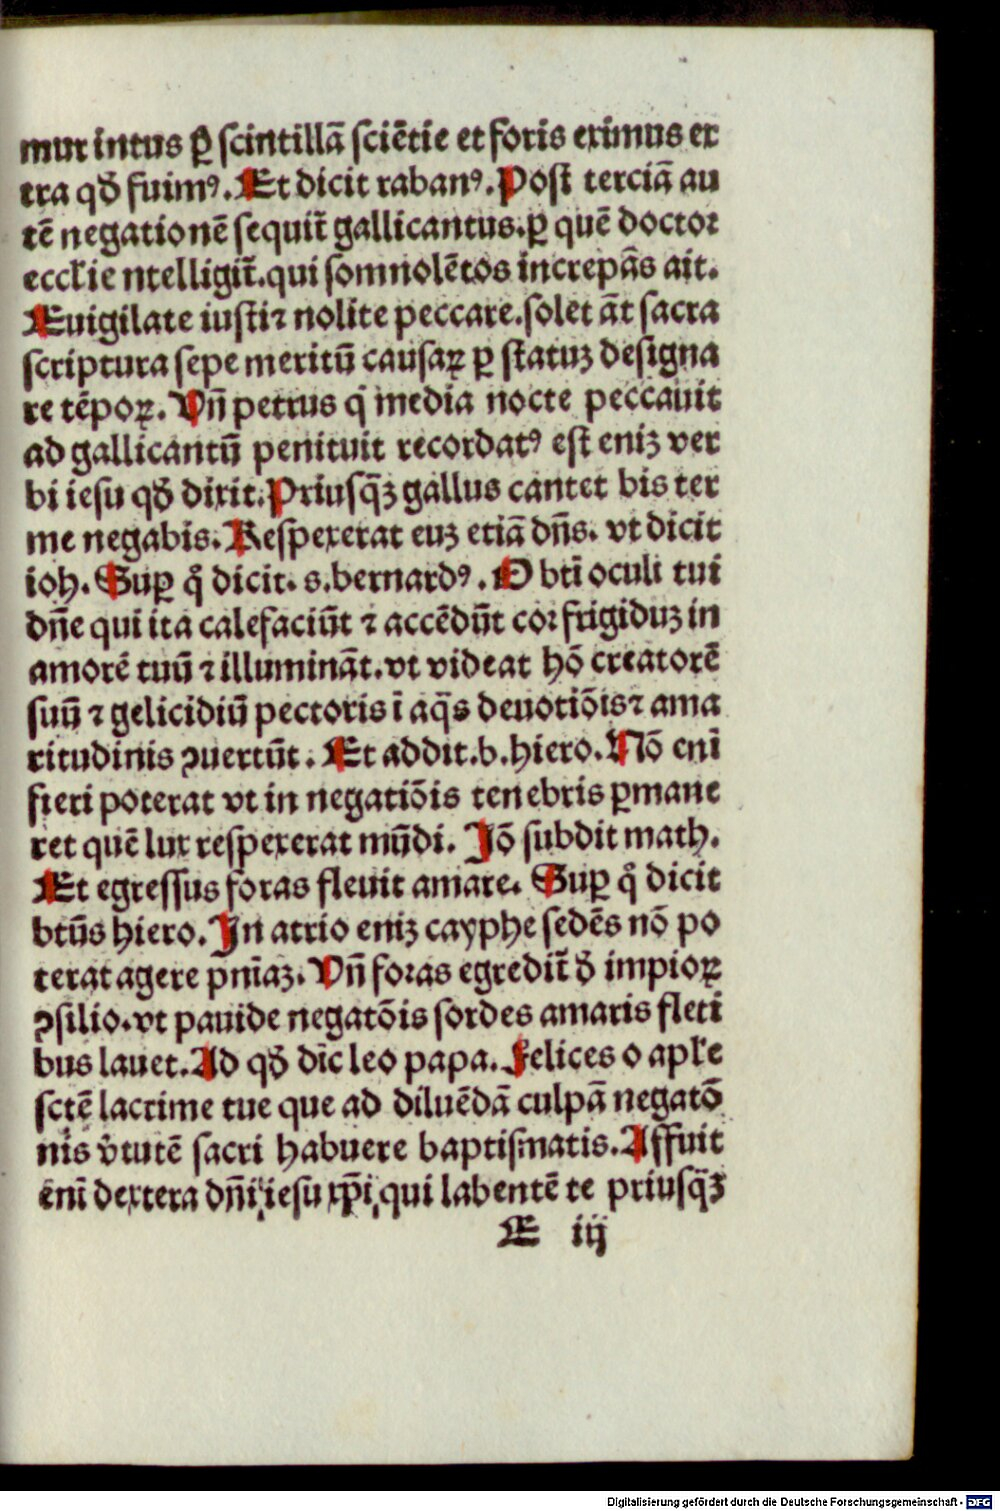 mur intus ꝑ scintillã sciẽtie et foris exlmus ex
tra qð fuimꝰ. Et dicit rabanꝰ. Post terciã au
tẽ negationẽ sequit̃ gallicantus. ꝑ quẽ doctor
eccłie ntelligit̃. qui somnolẽtos increpãs ait.
Euigilate iusti ⁊ nolite peccare. solet ãt sacra
scriptura sepe meritũ causaꝝ ꝑ statuꝫ designa
re tẽpoꝝ. Vñ petrus q̇ media nocte peccauit
ad gallicantũ penituit recordatꝰ est eniꝫ ver
bi iesu qð dixit. Priusq̃ꝫ gallus cantet bis ter
me negabis. Respexerat euꝫ etiã dñs. vt dicit
ioh. Suꝑ q̊ dicit. s. bernardꝰ. O bti̇̃ oculi tui
dñe qui ita calefaciũt ⁊ accẽdũt cor frigiduꝫ in
amorẽ tuũ ⁊ illuminãt. vt videat hõ creatorẽ
suũ ⁊ gelicidiũ pectoris ĩ aq̃s deuotiõis ⁊ ama
ritudinis ꝯuertũt. Et addit. b. hiero. Nõ enĩ
fieri poterat vt in negatiõis tenebris ꝑmane
ret quẽ lux respexerat mũdi. Jõ subdit math.
Et egressus foras fleuit amare. Suꝑ q̊ dicit
btũs hiero. In atrio eniꝫ cayphe sedẽs nõ po
terat agere pñiaꝫ. Vñ foras egredit̃ ð impioꝝ
ꝯsilio. vt pauide negatõis sordes amaris fleti
bus lauet. Ad qð dic̃ leo papa. Felices o apł'e
sctẽ lacrime tue que ad diluẽdã culpã negatõ
nis v̓tutẽ sacri habuere baptismatis. Affuit
enĩ dextera dñi iesu xp̃i qui labentẽ te priusq̃ꝫ
E iij
Digitalisierung gefördert durch die Deutsche Forschungsgemeinschaft - DFG